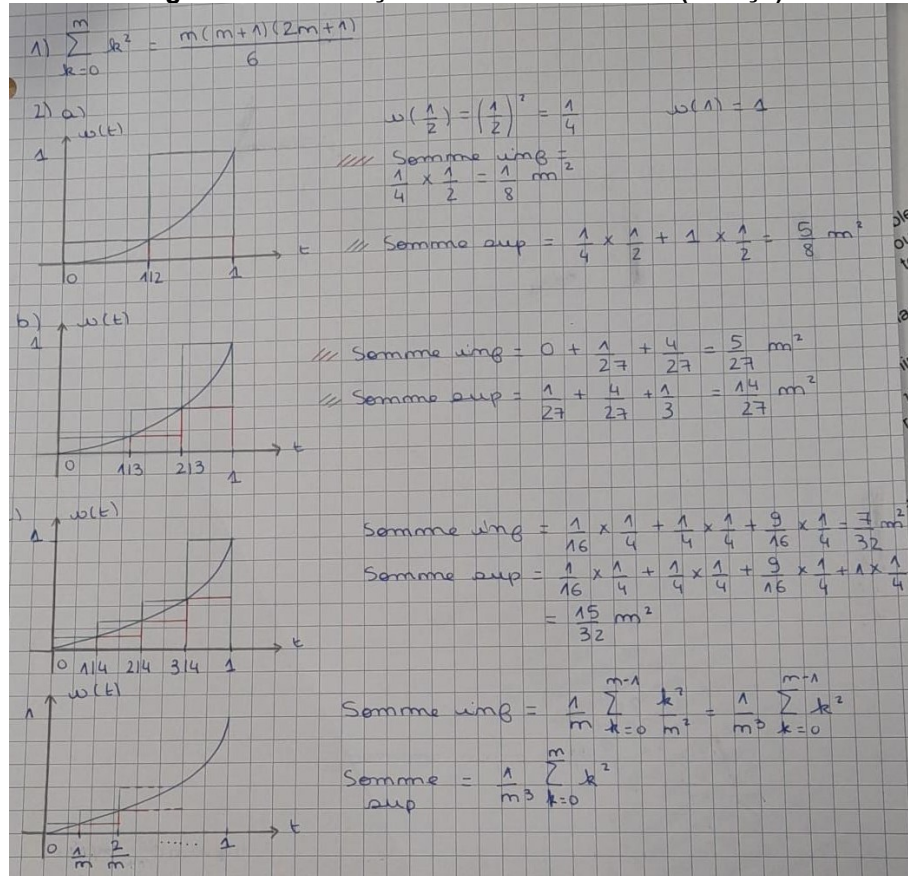 1) ∑_{k=0}^{m} k² = m(m+1)(2m+1) / 6
2) a)
v(t)
1
0 1/2 1 t
v(1/2) = (1/2)² = 1/4 v(1) = 1
//// Somme inf =
1/4 × 1/2 = 1/8 m²
/// Somme sup = 1/4 × 1/2 + 1 × 1/2 = 5/8 m²
b)
v(t)
1
0 1/3 2/3 1 t
/// Somme inf = 0 + 1/27 + 4/27 = 5/27 m²
/// Somme sup = 1/27 + 4/27 + 1/3 = 14/27 m²
)
v(t)
1
0 1/4 2/4 3/4 1 t
Somme inf = 1/16 × 1/4 + 1/4 × 1/4 + 9/16 × 1/4 = 7/32 m²
Somme sup = 1/16 × 1/4 + 1/4 × 1/4 + 9/16 × 1/4 + 1 × 1/4
= 15/32 m²
v(t)
1
0 1/m 2/m ...... 1 t
Somme inf = 1/m ∑_{k=0}^{m-1} k²/m² = 1/m³ ∑_{k=0}^{m-1} k²
Somme sup = 1/m³ ∑_{k=0}^{m} k²